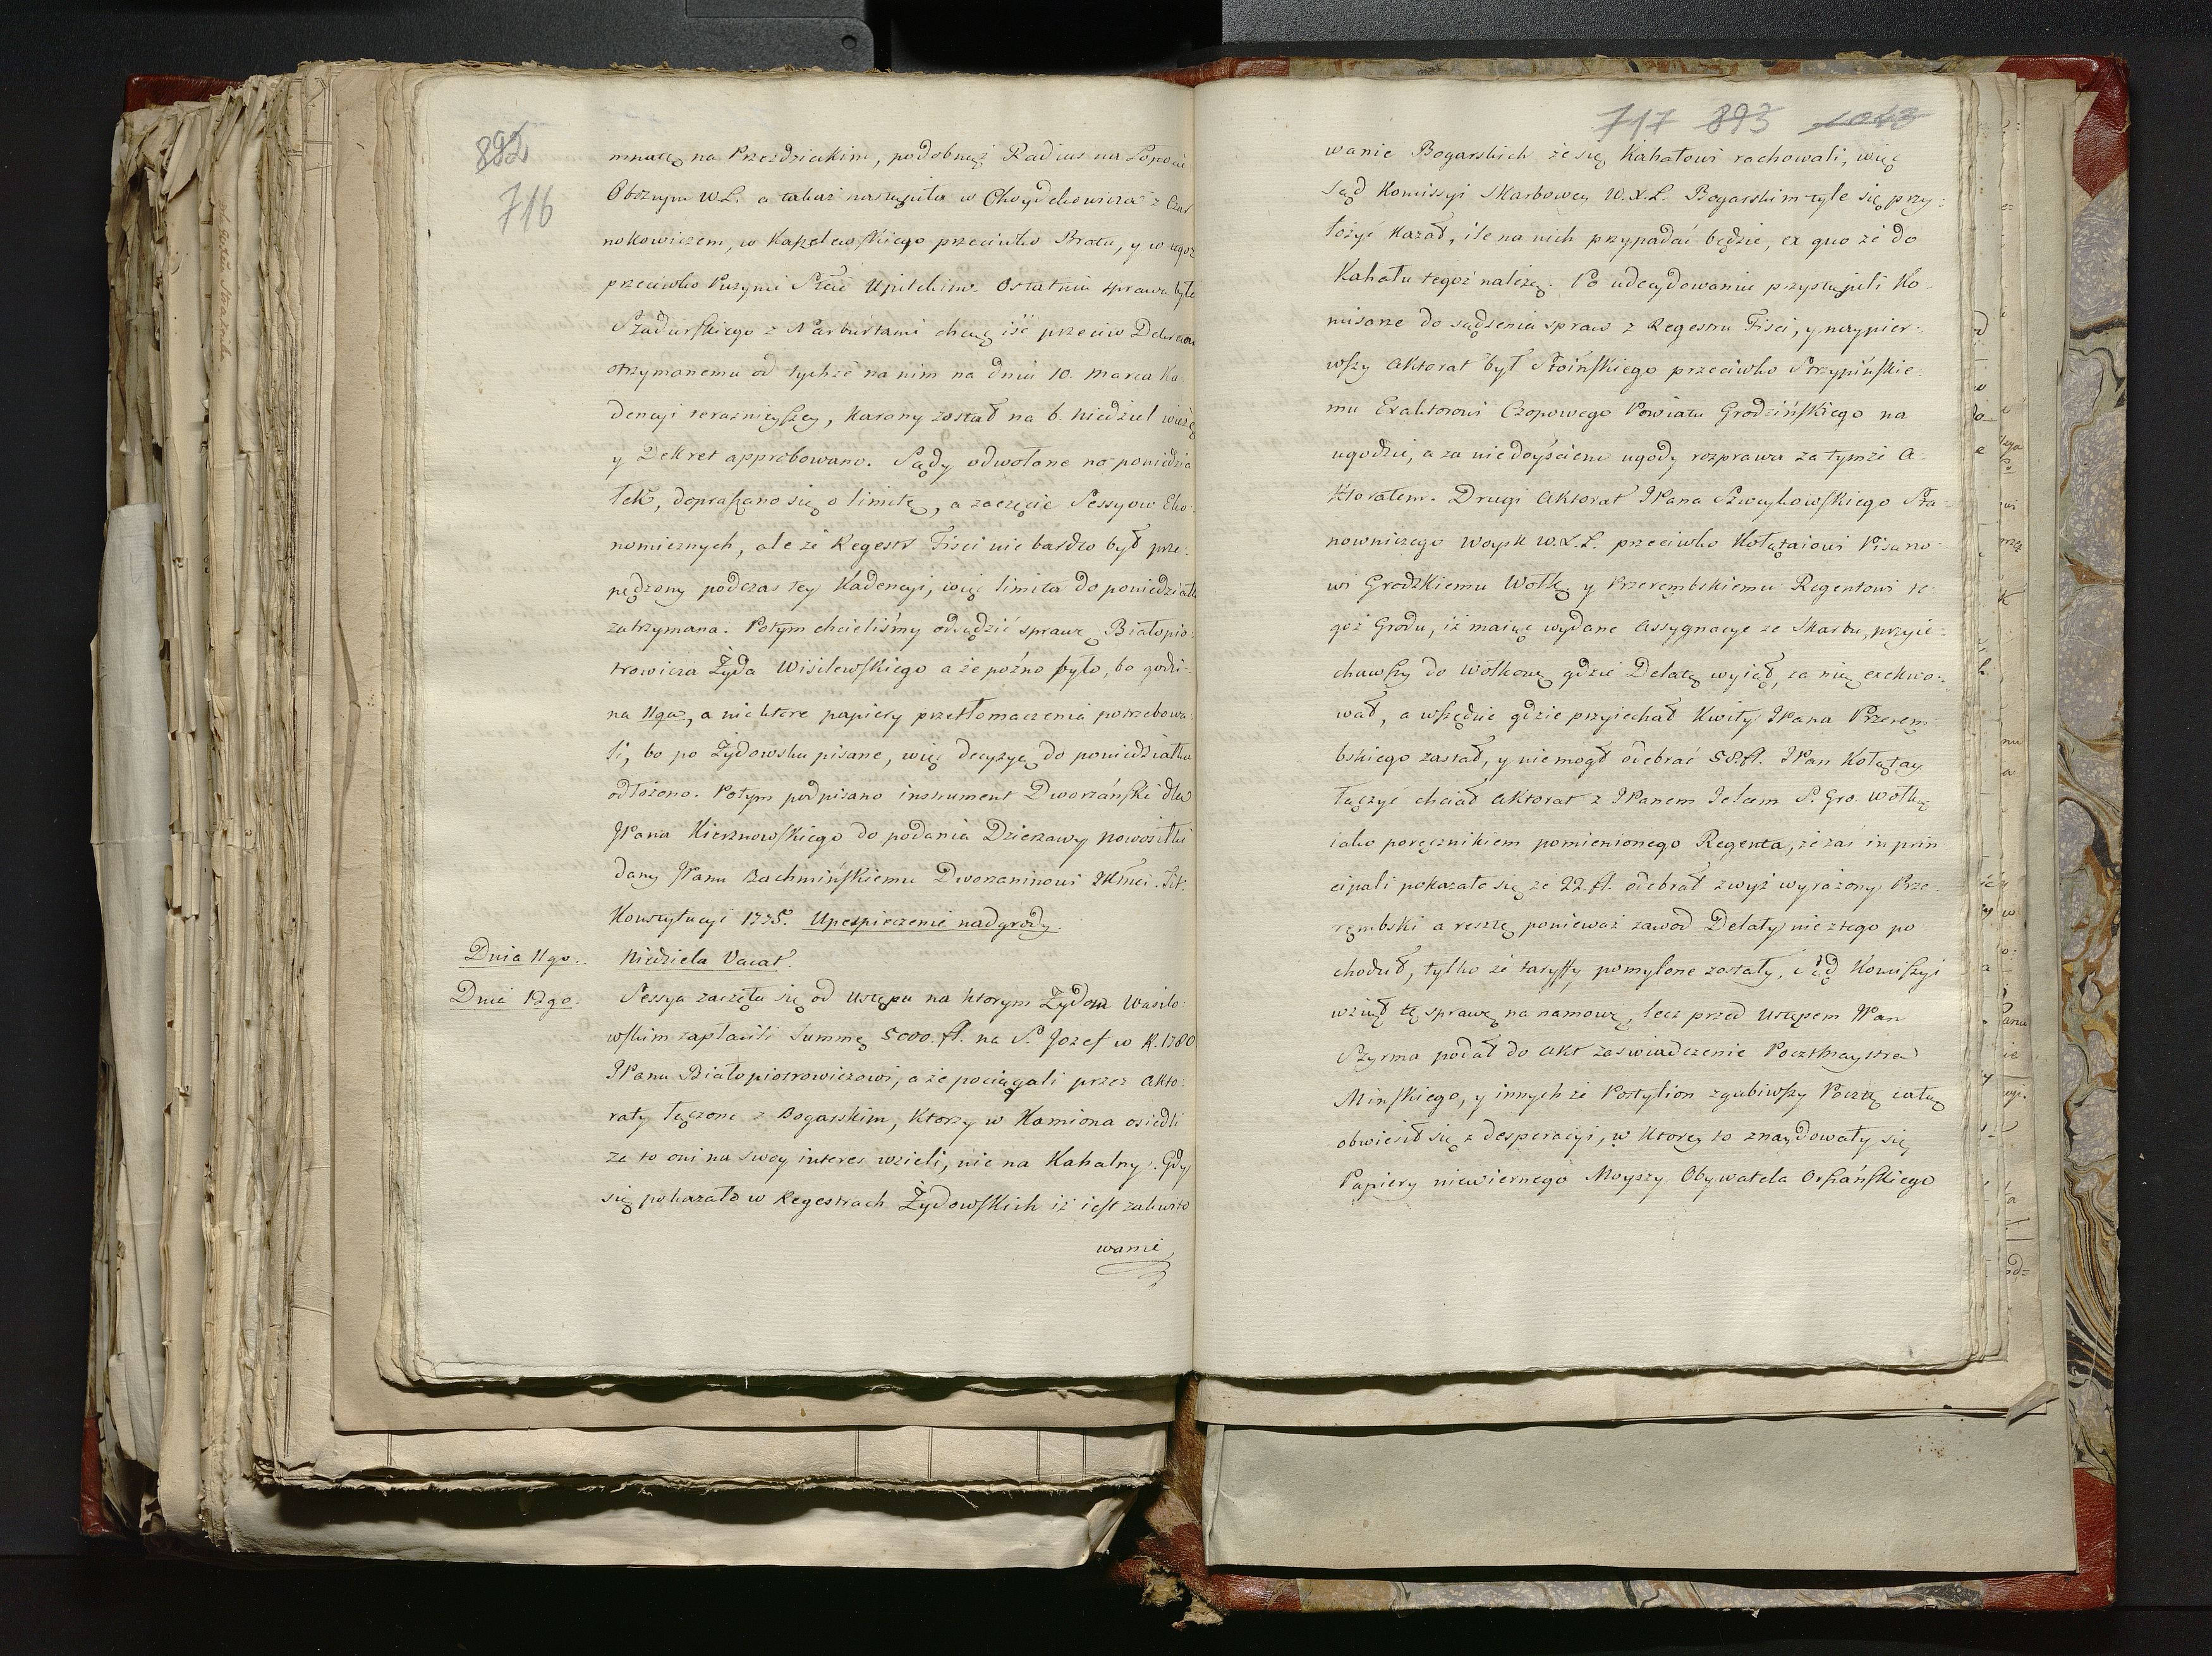 892
716
mnacą na Przezdziakim, podobnaż Radius na Łopacie
Obożnym W.L. a takaż nastąpiła w Chaydekowicza z Czar
nokowiczem, w Kapelewskiego przeciwko Bratu, y w tegoż
przeciwko Puzynie Stcie Upitskim. Ostatnia sprawa była
Szadurskiego z Narbutami chcąc iść przeciw Dekretow
otrzymanemu od tychże na nim na dniu 10. Marca Ka
dencyi teraznieyszey, karany został na 6. niedziel wieżą
y Dekret approbowano. Sądy odwołane na poniedzia
łek, dopraszano się o limitę, a zaczęcie Sessyow Eko-
nomicznych, ale że Regestr Fisci nie bardzo był prze-
pędzony podczas tey Kadencyi, więc limita do poniedziałk
zatrzymana. Potym chcieliśmy odsądzić sprawę Białopio-
trowicza Żyda Wisilewskiego a że pozno było, bo godzi-
na 11ga, a niektore papiery przetłomaczenia potrzebowa-
li, bo po Żydowsku pisane, więc decyzyą do poniedziałku
odłożono. Potym podpisano instrument Dworzański dla
JPana Kierznowskiego do podania Dzierżawy Nowosiłki
dany JPanu Bachmińskiemu Dworzaninowi JKMci. Tit.
Konstytucyi 1775. Ubespieczenie nadgrody.
Dnia 11go. Niedziela Vacat.
Dnia 12go. Sessya zaczęła się od Ustępu na ktorym Żydom Wasilo-
wskim zapłacili Summę 5000. fl. na S. Jozef w R. 1780
JPanu Białopiotrowiczowi, a że pociągali przez Akto-
raty łączone z Bogarskim, ktorzy w Kamiona osiedli
że to oni na swoy interes wzieli, nie na Kahalny. Gdy
się pokazało w Regestrach Żydowskich iż iest zakwito
wanie
717 893 1043
wanie Bogarskich że się Kahałowi rachowali, więc
Sąd Komissyi Skarbowey W.X.L. Bogarskim tyle się przy-
łożyć kazał, ile na nich przypadać będzie, ex quo że do
Kahału tegoż należą. Po udecydowaniu przystąpili Ko-
misarze do sądzenia spraw z Regestru Fisci, y naypier-
wszy Aktorat był Stoińskiego przeciwko Strzypińskie-
mu Exaktorowi Czopowego Powiatu Grodzińskiego na
ugodzie, a za niedoyściem ugody rozprawa za tymże A-
ktoratem. Drugi Aktorat JPana Szwaykowskiego Sta
nowniczego Woysk W.X.L. przeciwko Kołłątaiowi Pisarzo-
wi Grodzkiemu Wołk. y Przerembskiemu Regentowi te-
goż Grodu, iż maiąc wydane Assygnacye ze Skarbu, przyie-
chawszy do Wołkow. gdzie Delatę wyiął, za nią exekwo-
wał, a wszędzie gdzie przyiechał Kwity JPana Przerem-
bskiego zastał, y nie mogł odebrać 58 fl. JPan Kołłątay
łączyć chciał Aktorat z JPanem Jelcem S. Gro. Wołk.
iako poręcznikiem pomienionego Regenta, że zaś in prin
cipali pokazało się ze 22. fl. odebrał zwyż wyrażony Prze-
rembski a resztę ponieważ zawod Delaty nie z tego po-
chodził, tylko że taryffy pomylone zostały, Sąd Komiszyi
wziął tę sprawę na namowę, lecz przed Ustępem JPan
Szyrma podał do Akt zaswiadczenie Pocztmaystra
Minskiego, y innych że Postylion zgubiwszy Pocztę całą
obwiesił się z desperacyi, w ktorey to znaydowały się
Papiery niewiernego Moyszy Obywatela Orszańskiego